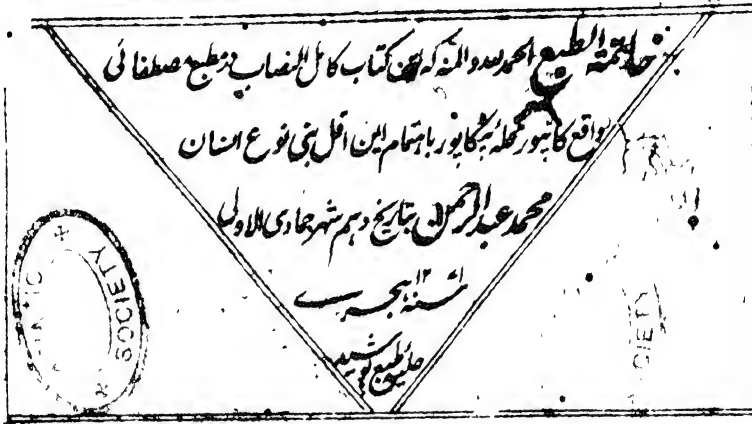 خاتمة الطبع الحمد لله و المنه که این کتاب کامل النصاب در مطبع مصطفائی
واقع کانپور محله پٹکاپور باهتمام این اقل بنی نوع انسان
محمد عبد الرحمن بتاریخ دهم شهر جمادی الاولی
سنه ۱۲۷۱ هجری
حلیه طبع پوشید
SOCIETY
CIETY